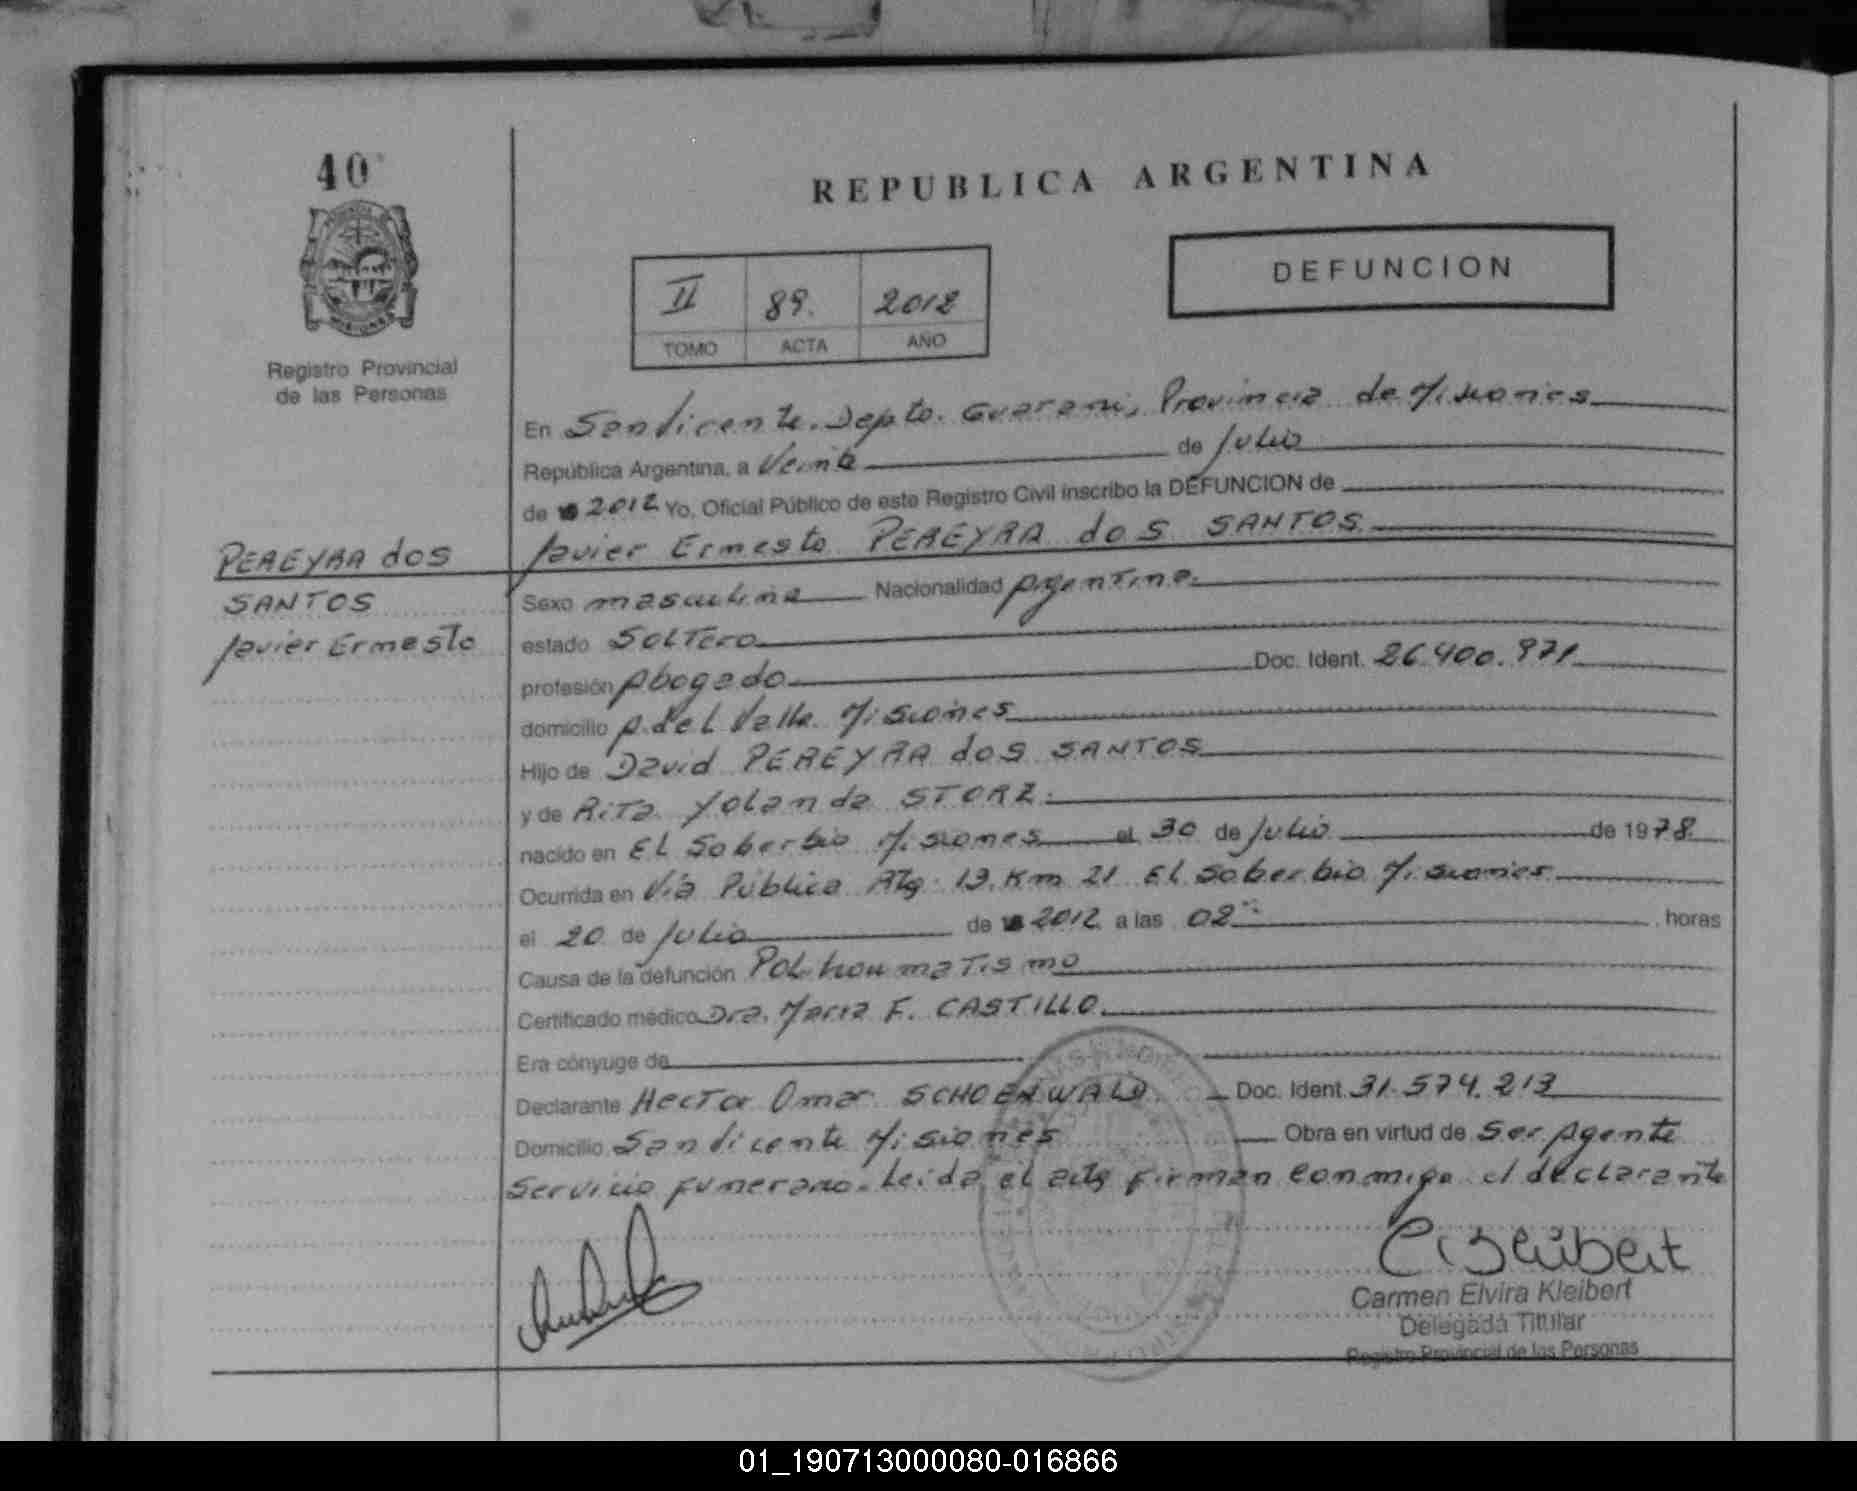 40
REPUBLICA ARGENTINA
DEFUNCION
II 89. 2012
TOMO ACTA AÑO
Registro Provincial
de las Personas
En San Vicente. Depto. Guarani, Provincia de Misiones
República Argentina, a Veinte de Julio
de 2012 Yo, Oficial Público de este Registro Civil inscribo la DEFUNCION de
Javier Ernesto PEREYRA dos SANTOS
PEREYRA dos
SANTOS
Javier Ernesto
Sexo masculino Nacionalidad Argentina.
estado Soltero
profesión Abogado Doc. Ident. 26.400.971
domicilio A. del Valle Misiones
Hijo de David PEREYRA dos SANTOS
y de Rita Yolanda STORZ.
nacido en El Soberbio Misiones el 30 de Julio de 1978
Ocurrida en Vía Pública Rta. 13. Km 21 El Soberbio Misiones
el 20 de Julio de 2012 a las 02 horas
Causa de la defunción Politraumatismo
Certificado médico Dra. Maria F. CASTILLO.
Era cónyuge de
Declarante Hector Omar SCHOENWALD Doc. Ident. 31.574.213
Domicilio San Vicente Misiones Obra en virtud de Ser Agente
Servicio funerario. Leida el acta firman conmigo el declarante
Carmen Elvira Kleibert
Delegada Titular
Registro Provincial de las Personas
01_190713000080-016866